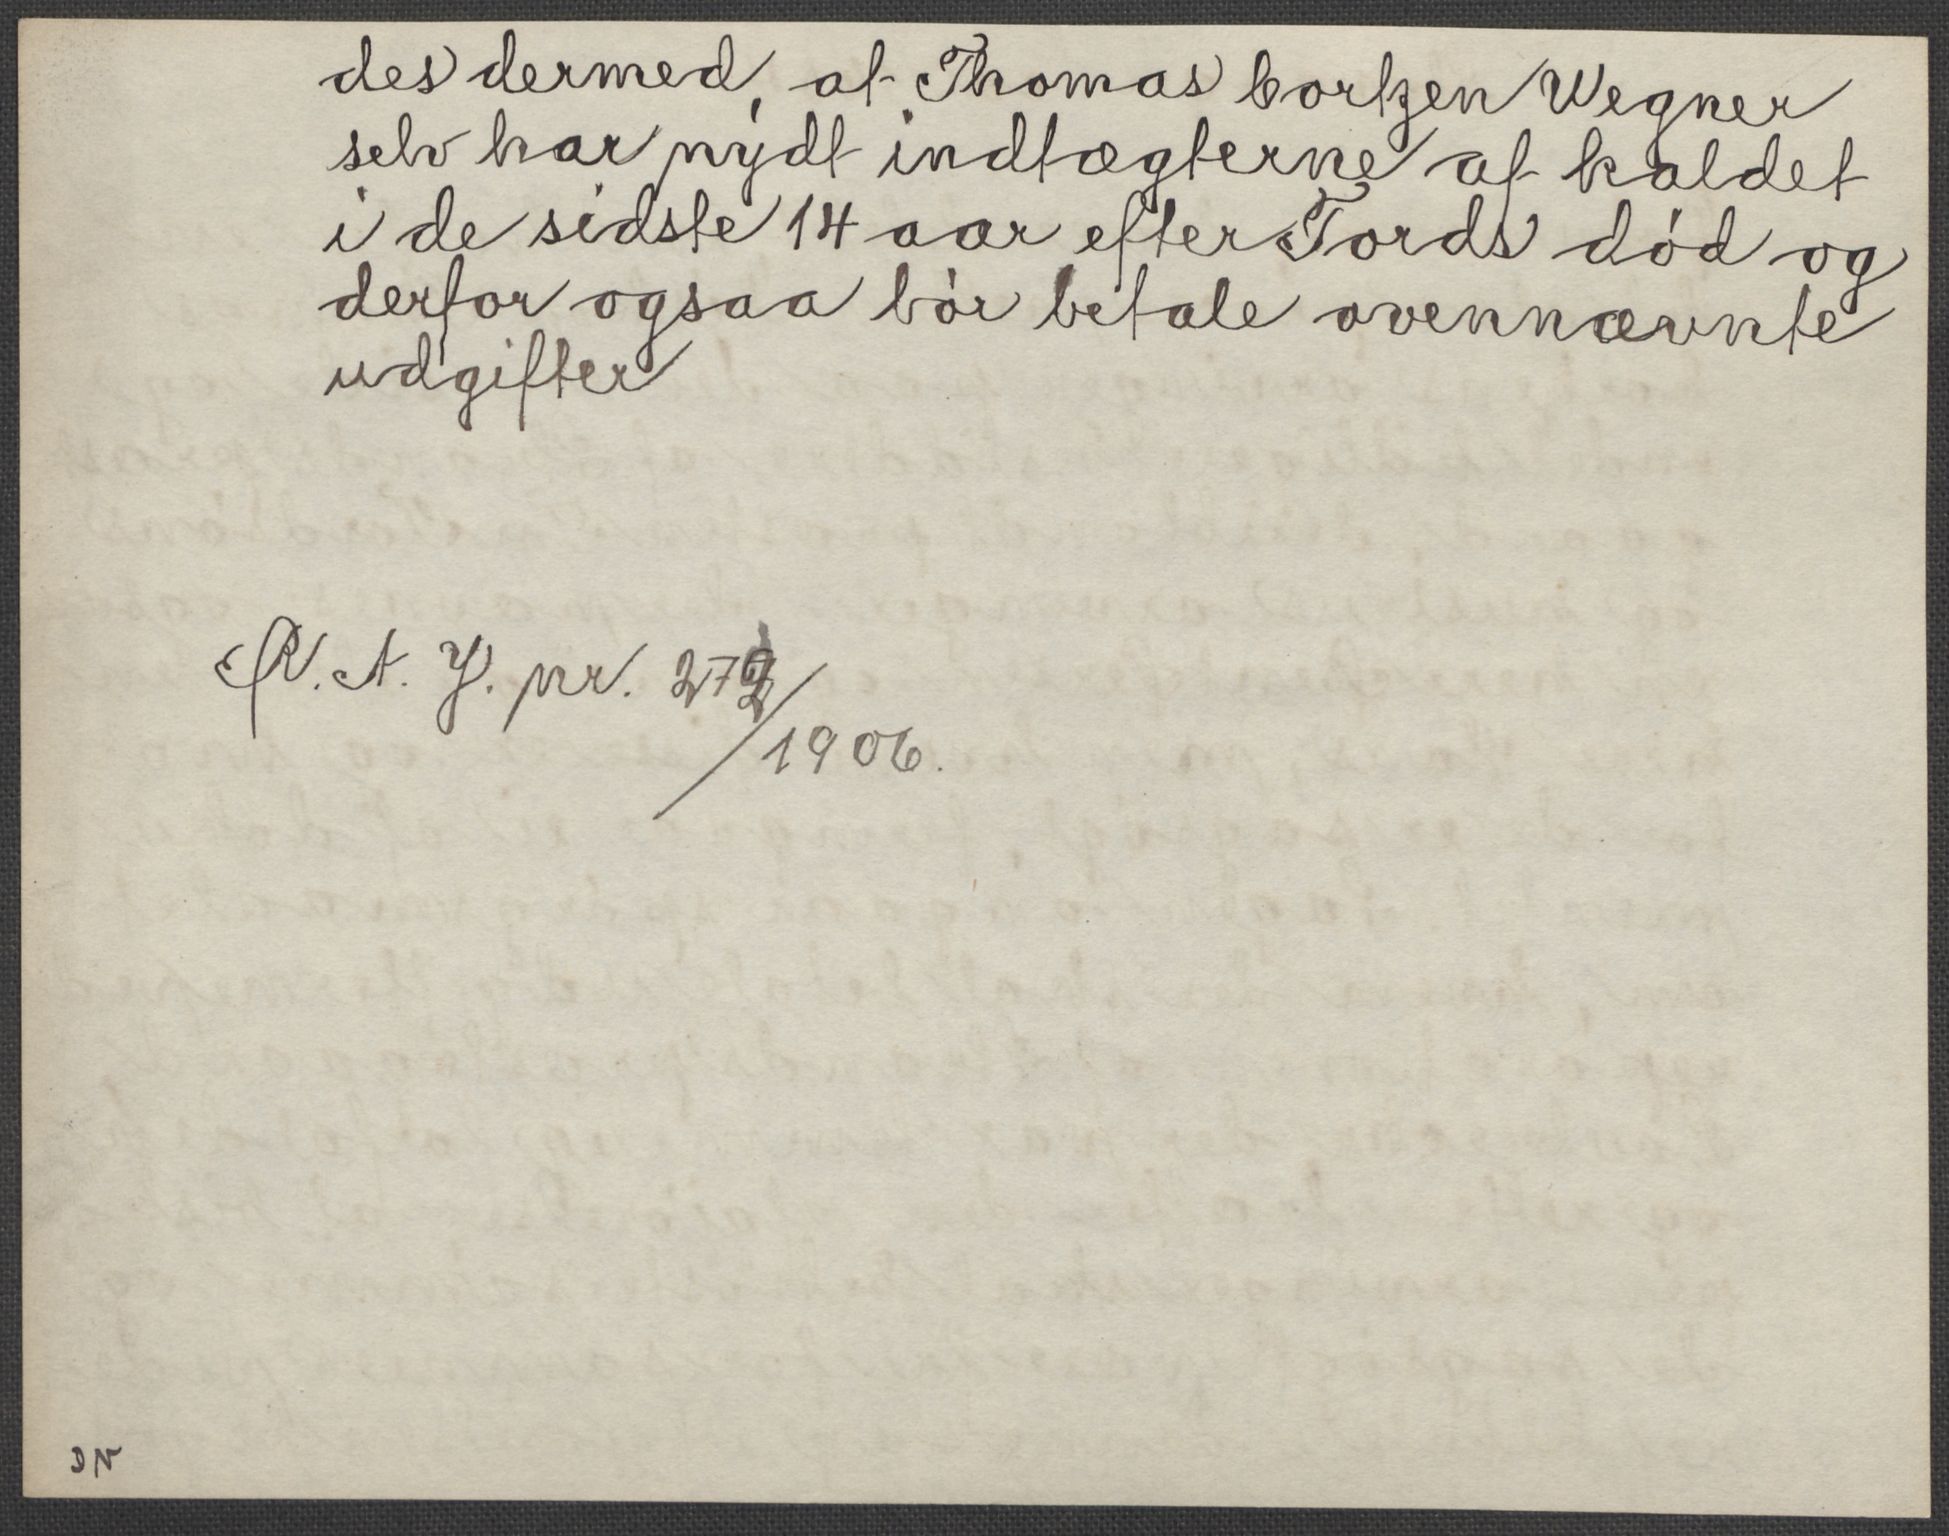 des dermed, at Thomas Cortzen Wegner
selv har nydt indtægterne af kaldet
i de sidste 14 aar efter Tords död og
derfor ogsaa bör betale ovennævnte
udgifter
R. A. J. nr. 272/1906.
DN